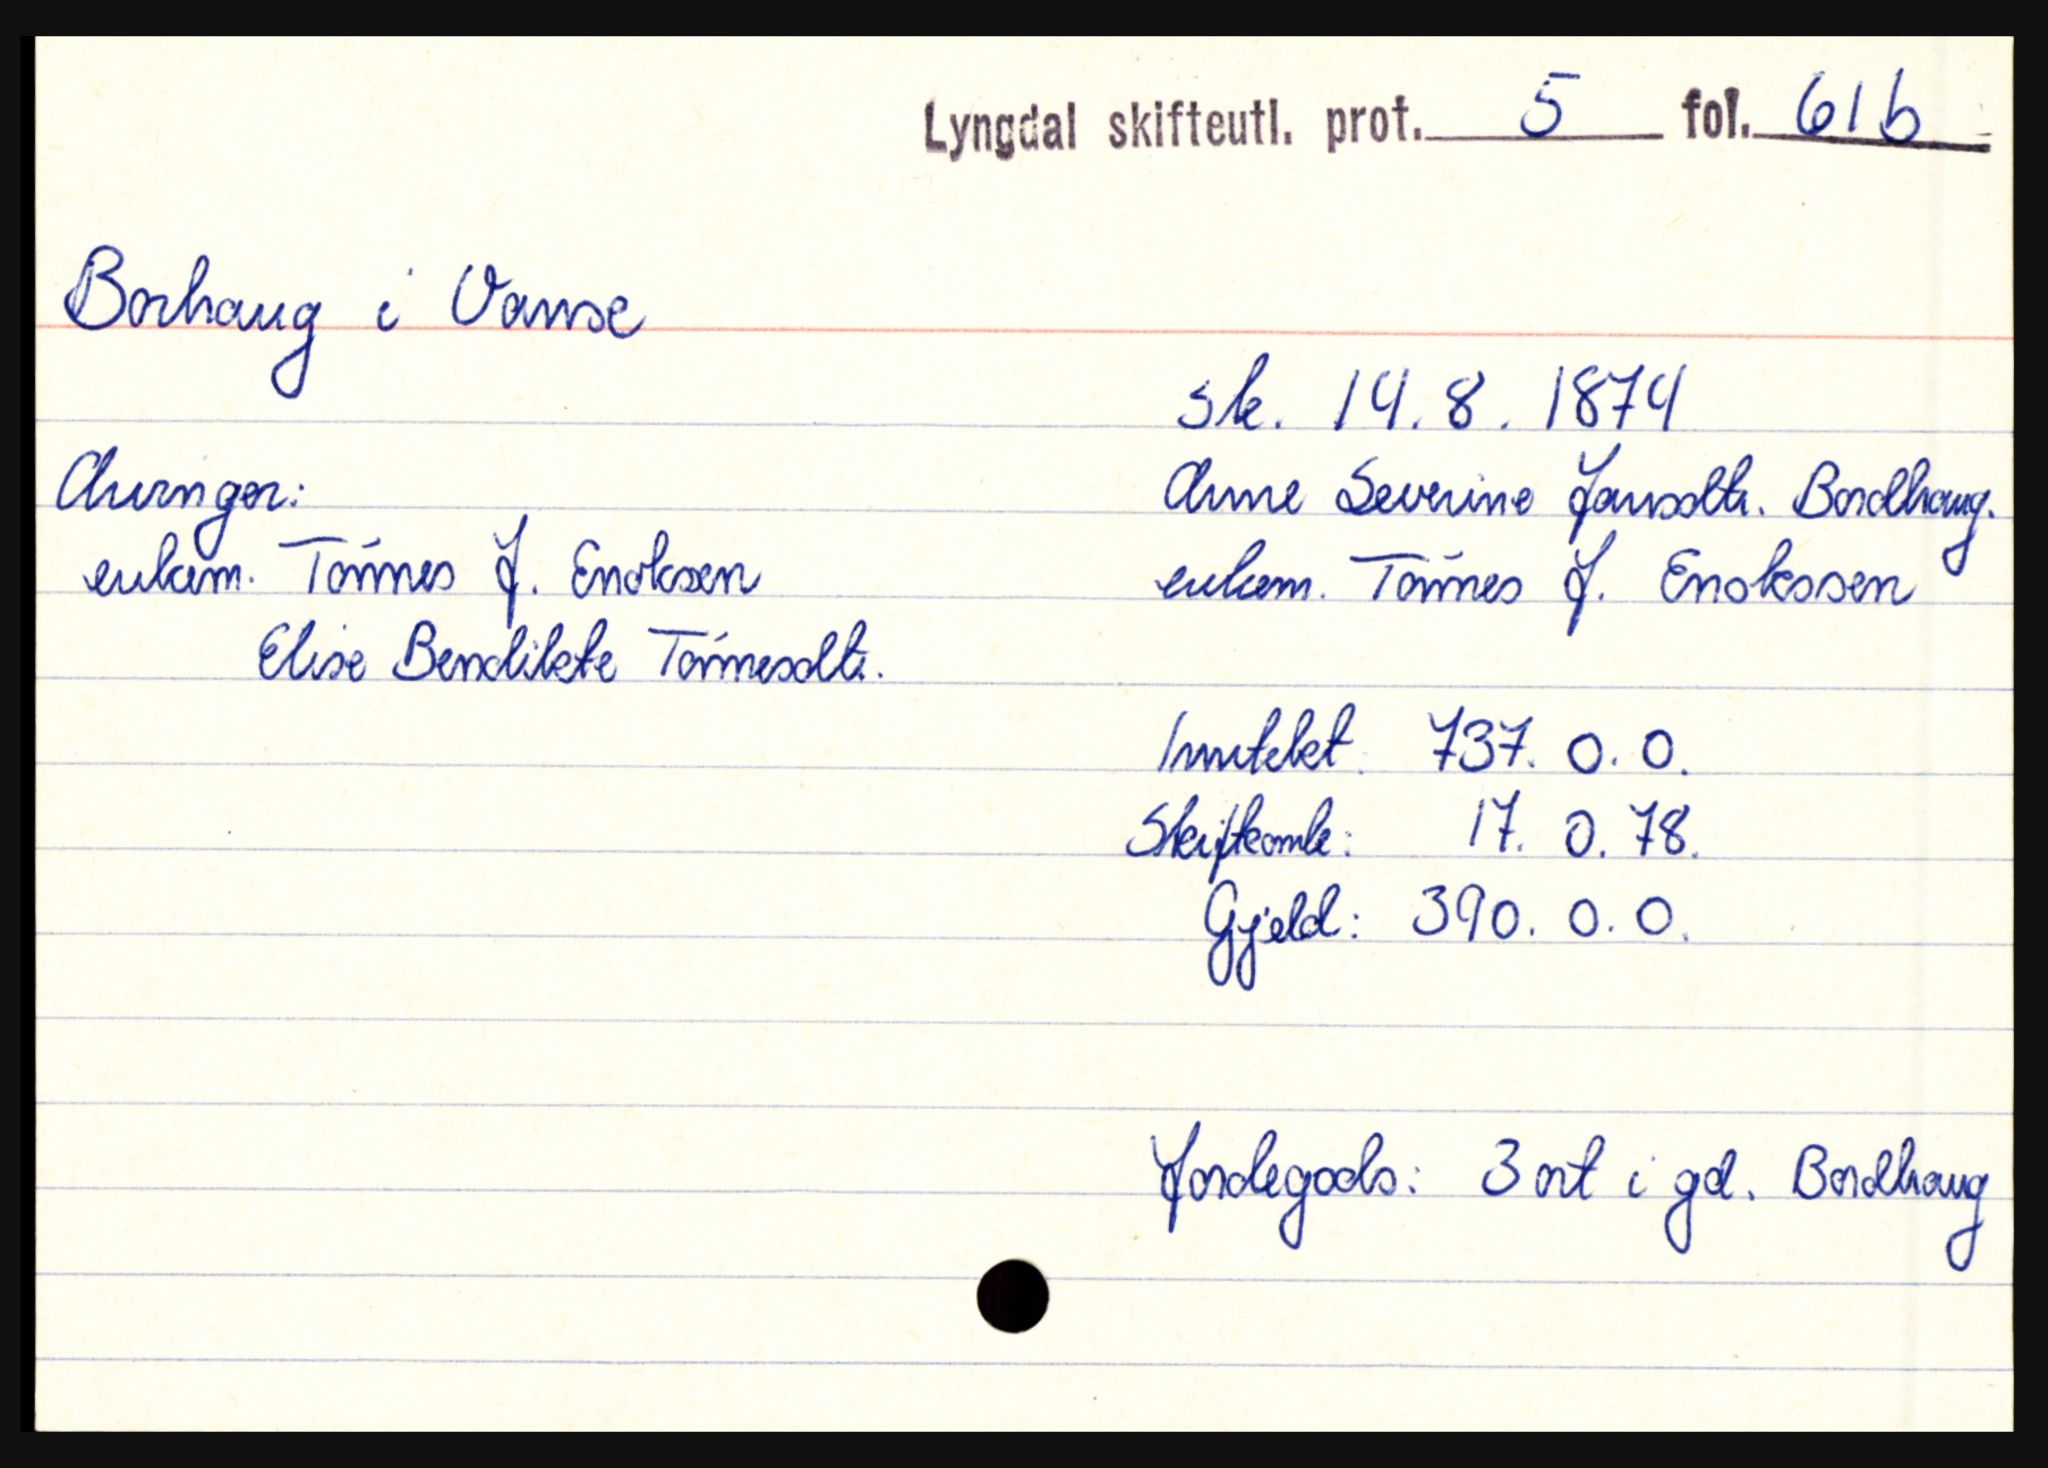 Lyngdal skifteutl. prot. 5 fol. 61b
Borhaug i Vanse
sk. 14.8.1874
Arvinger:
Anne Severine Jansdtr. Bordhaug.
enkem. Tønnes J. Enoksen
enkem. Tønnes J. Enokssen
Elise Bendikte Tønnesdtr.
Inntekt 737. 0. 0.
Skiftkomk: 17. 0. 78.
Gjeld: 390. 0. 0.
Jordegods: 3 ort i gd. Bordhaug